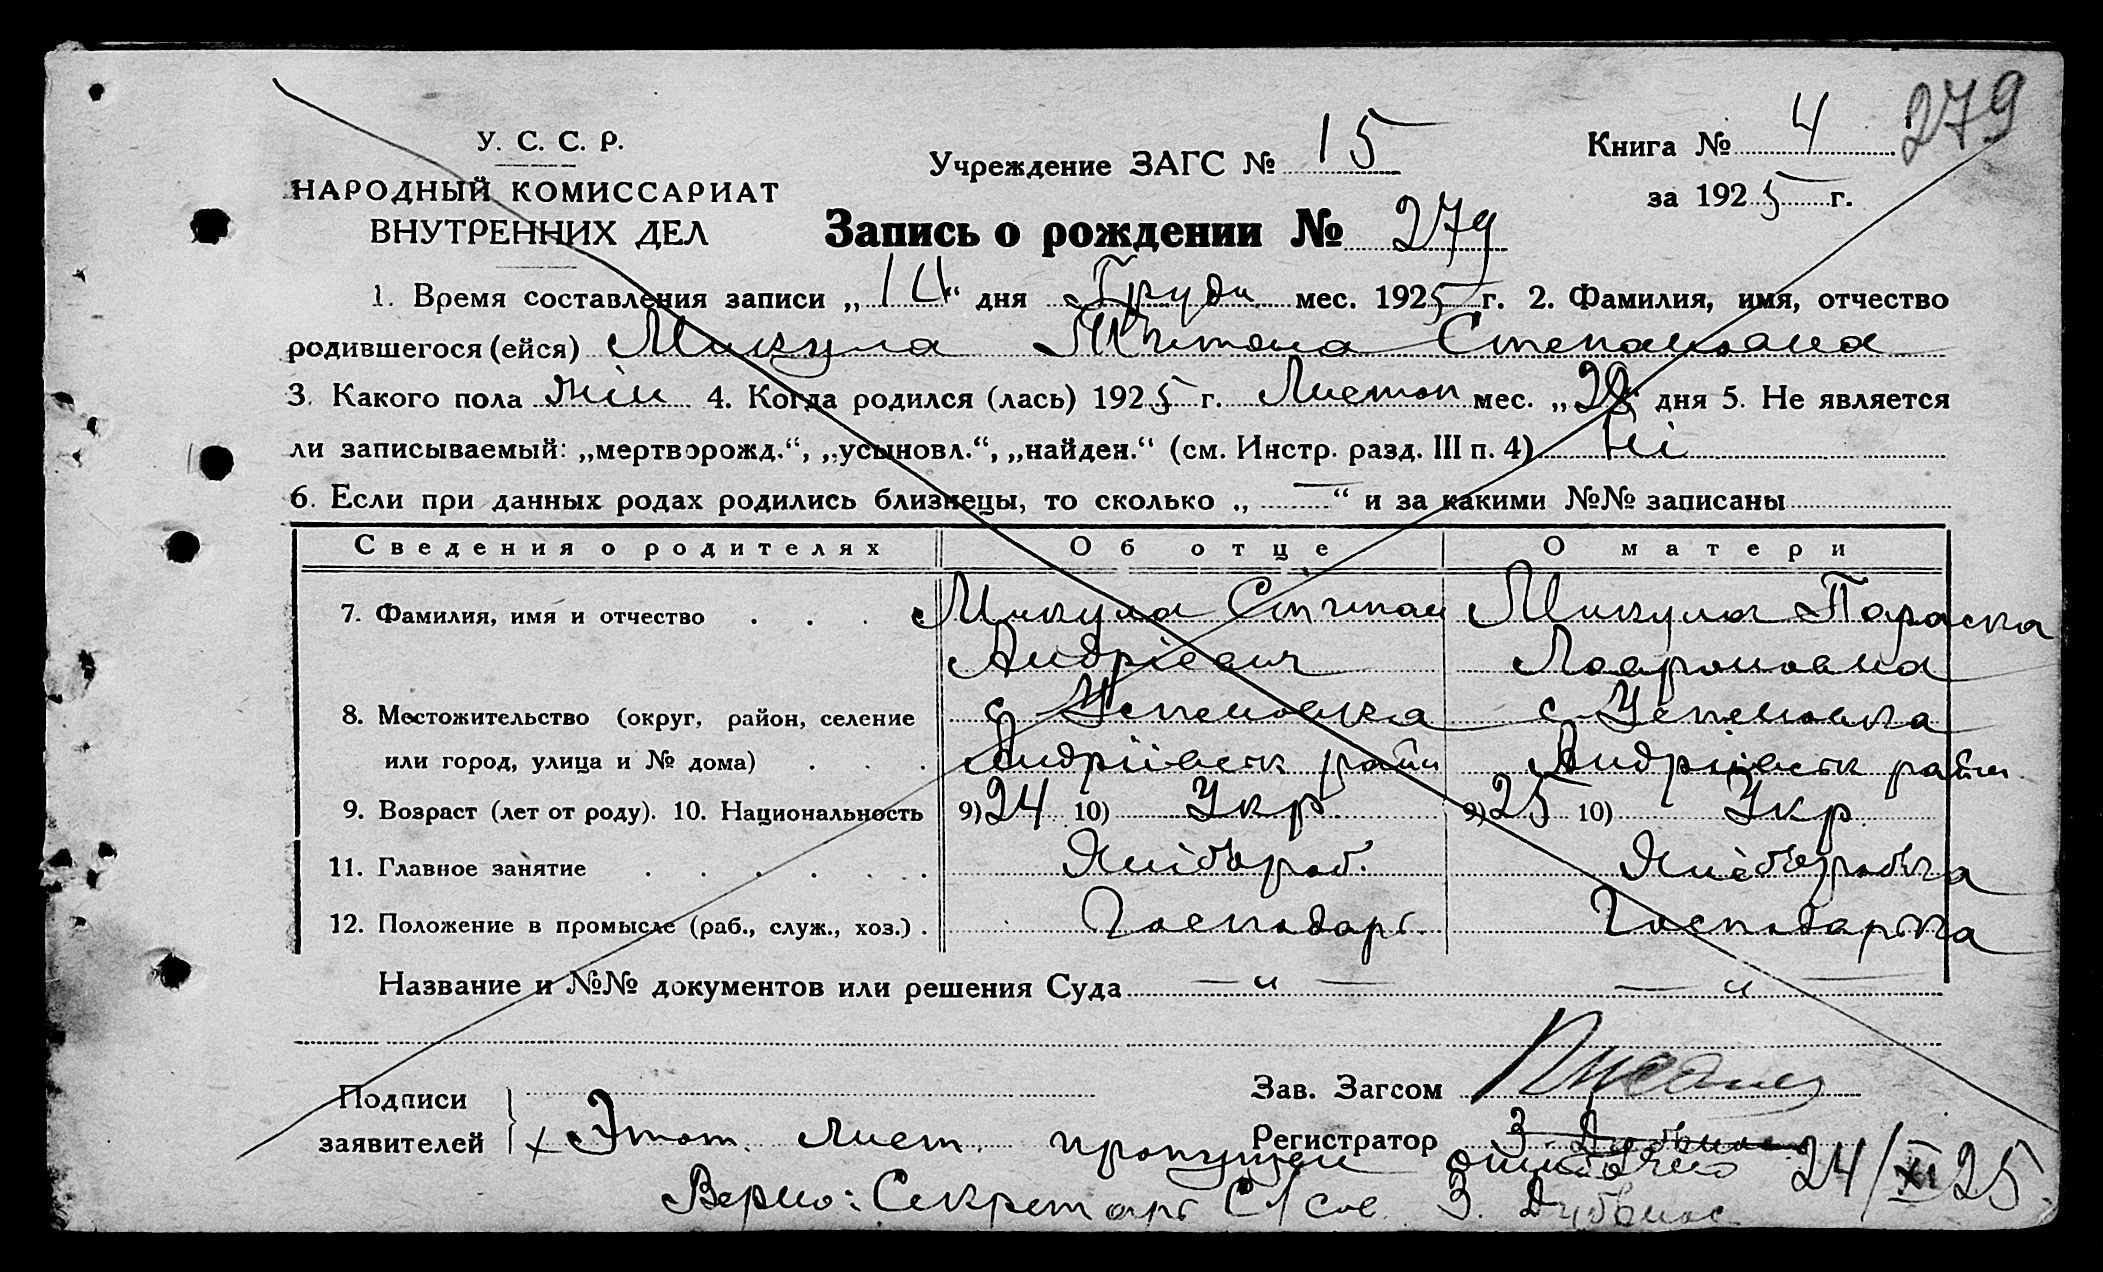 279
У. С. С. Р.
НАРОДНЫЙ КОМИССАРИАТ
ВНУТРЕННИХ ДЕЛ
Учреждение ЗАГС № 15
Книга № 4
за 1925 г.
Запись о рождении № 279
1. Время составления записи „ “ дня Груд мес. 1925 г. 2. Фамилия, имя, отчество
родившегося (ейся) Микула Степановна
3. Какого пола жін 4. Когда родился (лась) 1925 г. Листоп мес. „ “ дня 5. Не является
ли записываемый: „мертворожд.“, „усыновл.“, „найден.“ (см. Инстр. разд. III п. 4) Ні
6. Если при данных родах родились близнецы, то сколько „ — “ и за какими №№ записаны
Сведения о родителях Об отце О матери
7. Фамилия, имя и отчество Микула Степан Микула Параска
Андрієвич Лавроновна
8. Местожительство (округ, район, селение с Успеновка с Успеновка
или город, улица и № дома) Андріївськ район Андріївськ район
9. Возраст (лет от роду). 10. Национальность 9) 24 10) Укр. 9) 25 10) Укр.
11. Главное занятие Хліборб. Хліборобка
12. Положение в промысле (раб., служ., хоз.) Господарь Господарька
Название и №№ документов или решения Суда — „ — — „ —
Подписи
заявителей
Зав. Загсом
Регистратор З. Дубьнос
х Этот лист пропущен ошибочно 24/XI 25
Верно: Секретарь С/сов З. Дубьнос